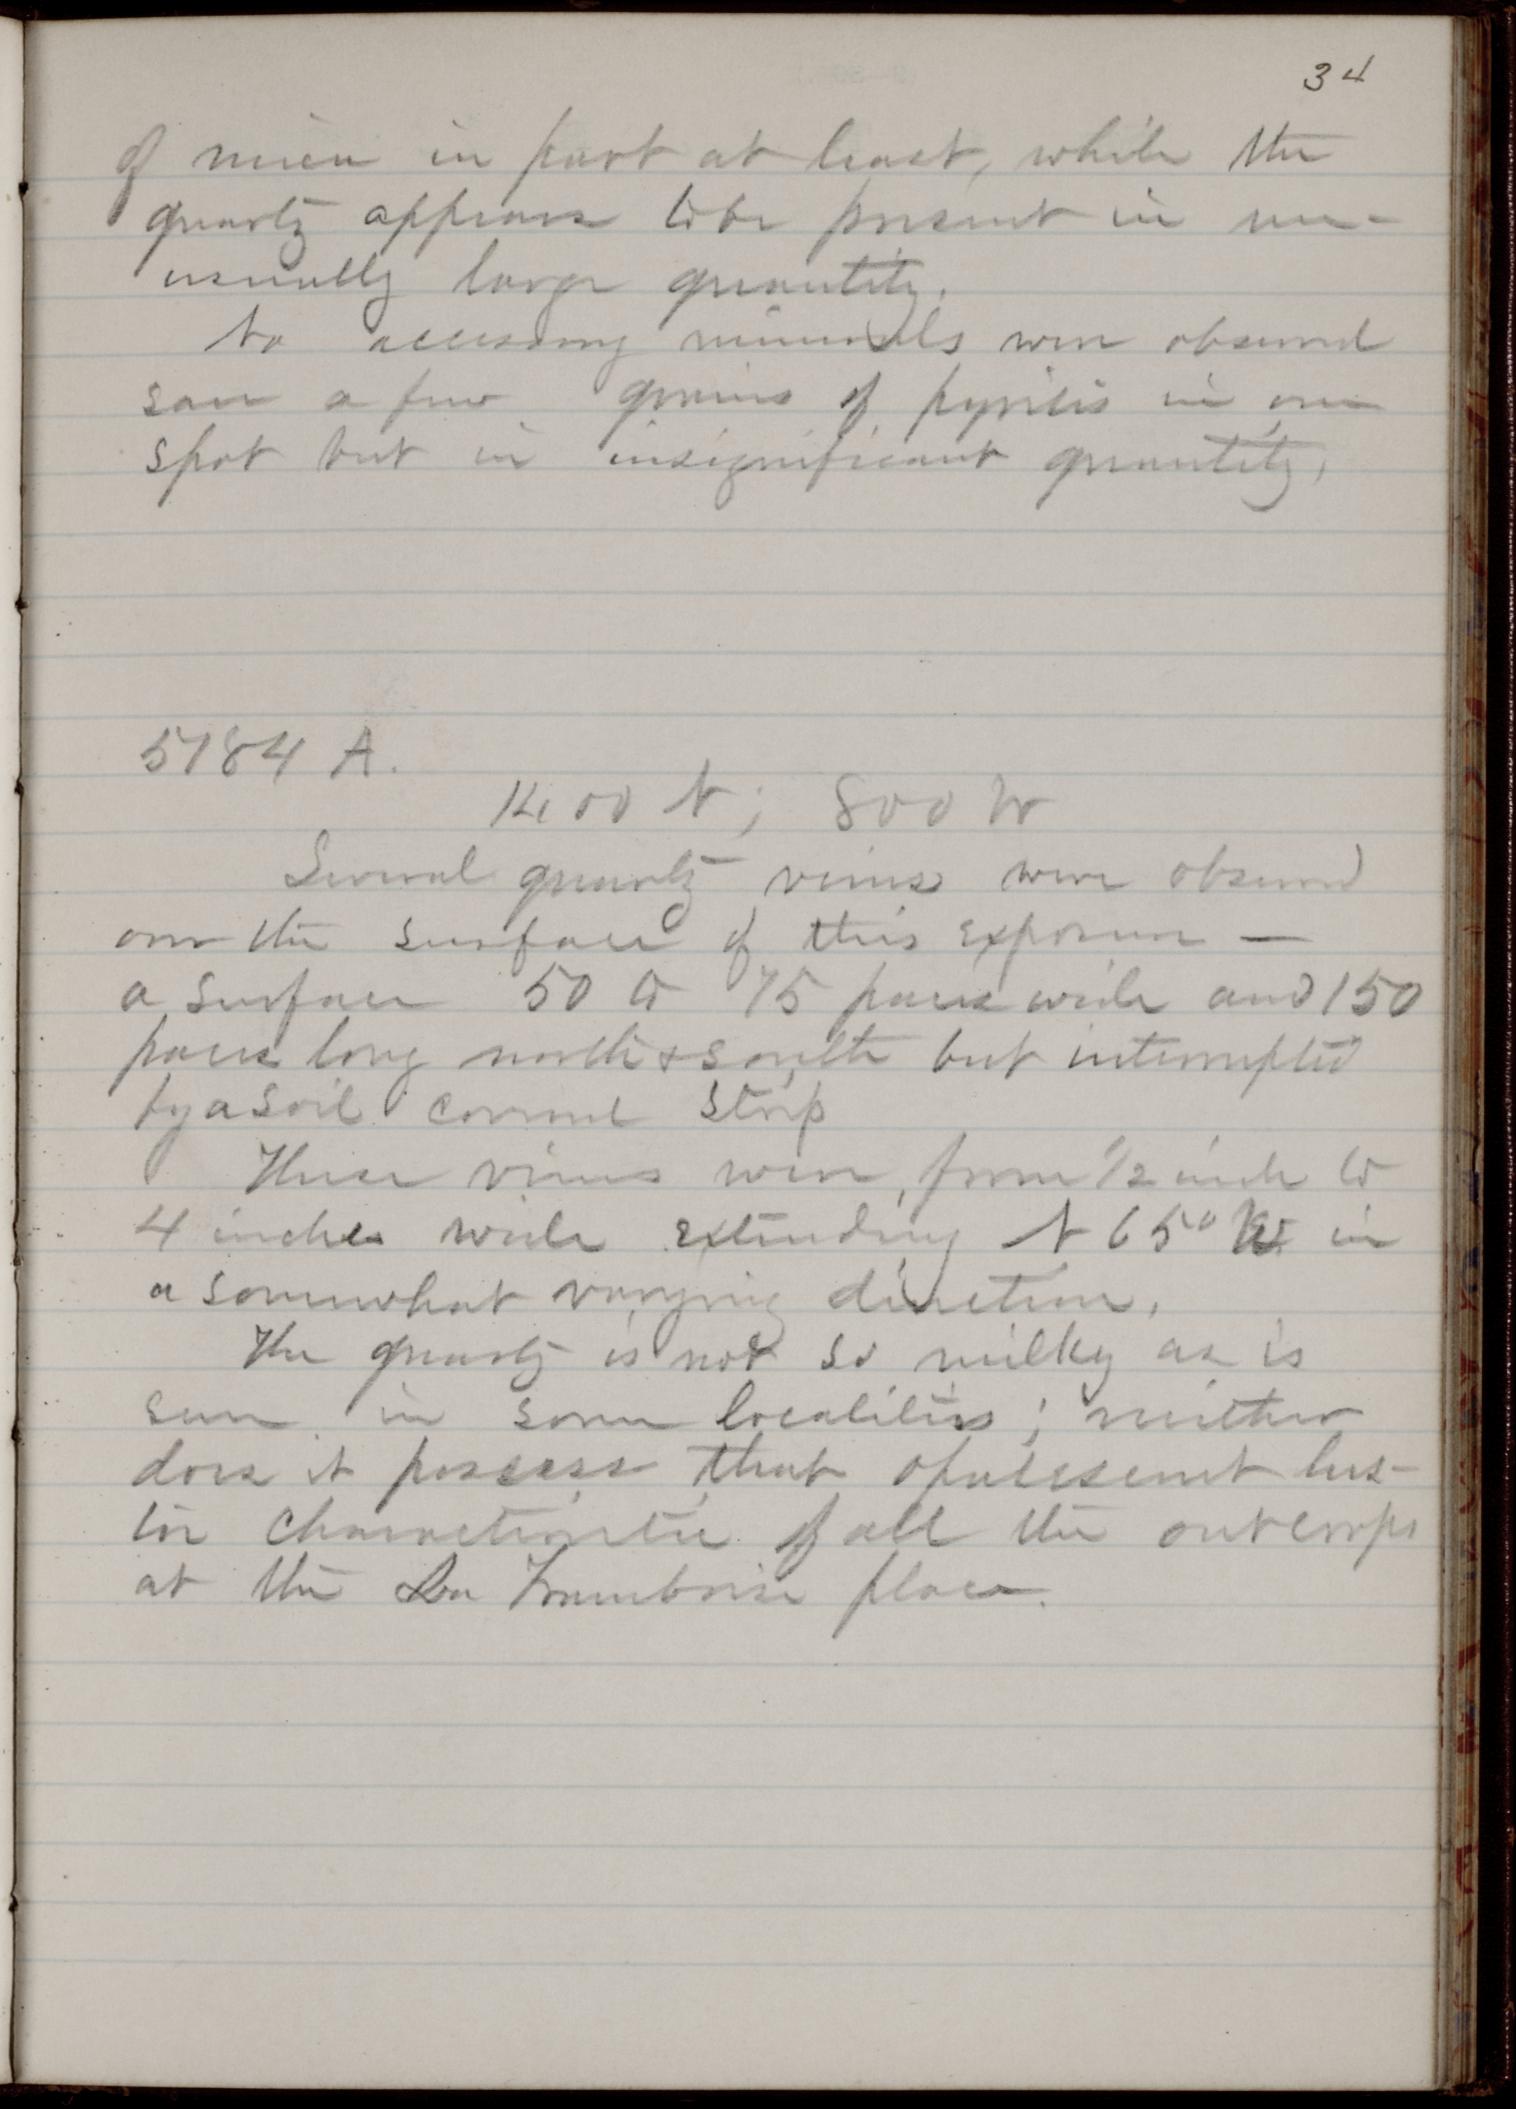 34
of mica in part at least, while the
quartz appears to be present in un-
usually large quantity.
No accessory minerals were observed
save a few grains of pyrites in one
spot but in insignificant quantity.
5184 A.
1400 N; 800 W
Several quartz veins were observed
over the surface of this exposure —
a surface 50 to 75 paces wide and 150
paces long north & south but interrupted
by a soil covered strip
These veins were from 1/2 inch to
4 inches wide extending N 65° W in
a somewhat varying direction.
The quartz is not so milky as is
seen in some localities; neither
does it possess that opalescent lus-
tre characteristic of all the outcrops
at the La Framboise place.